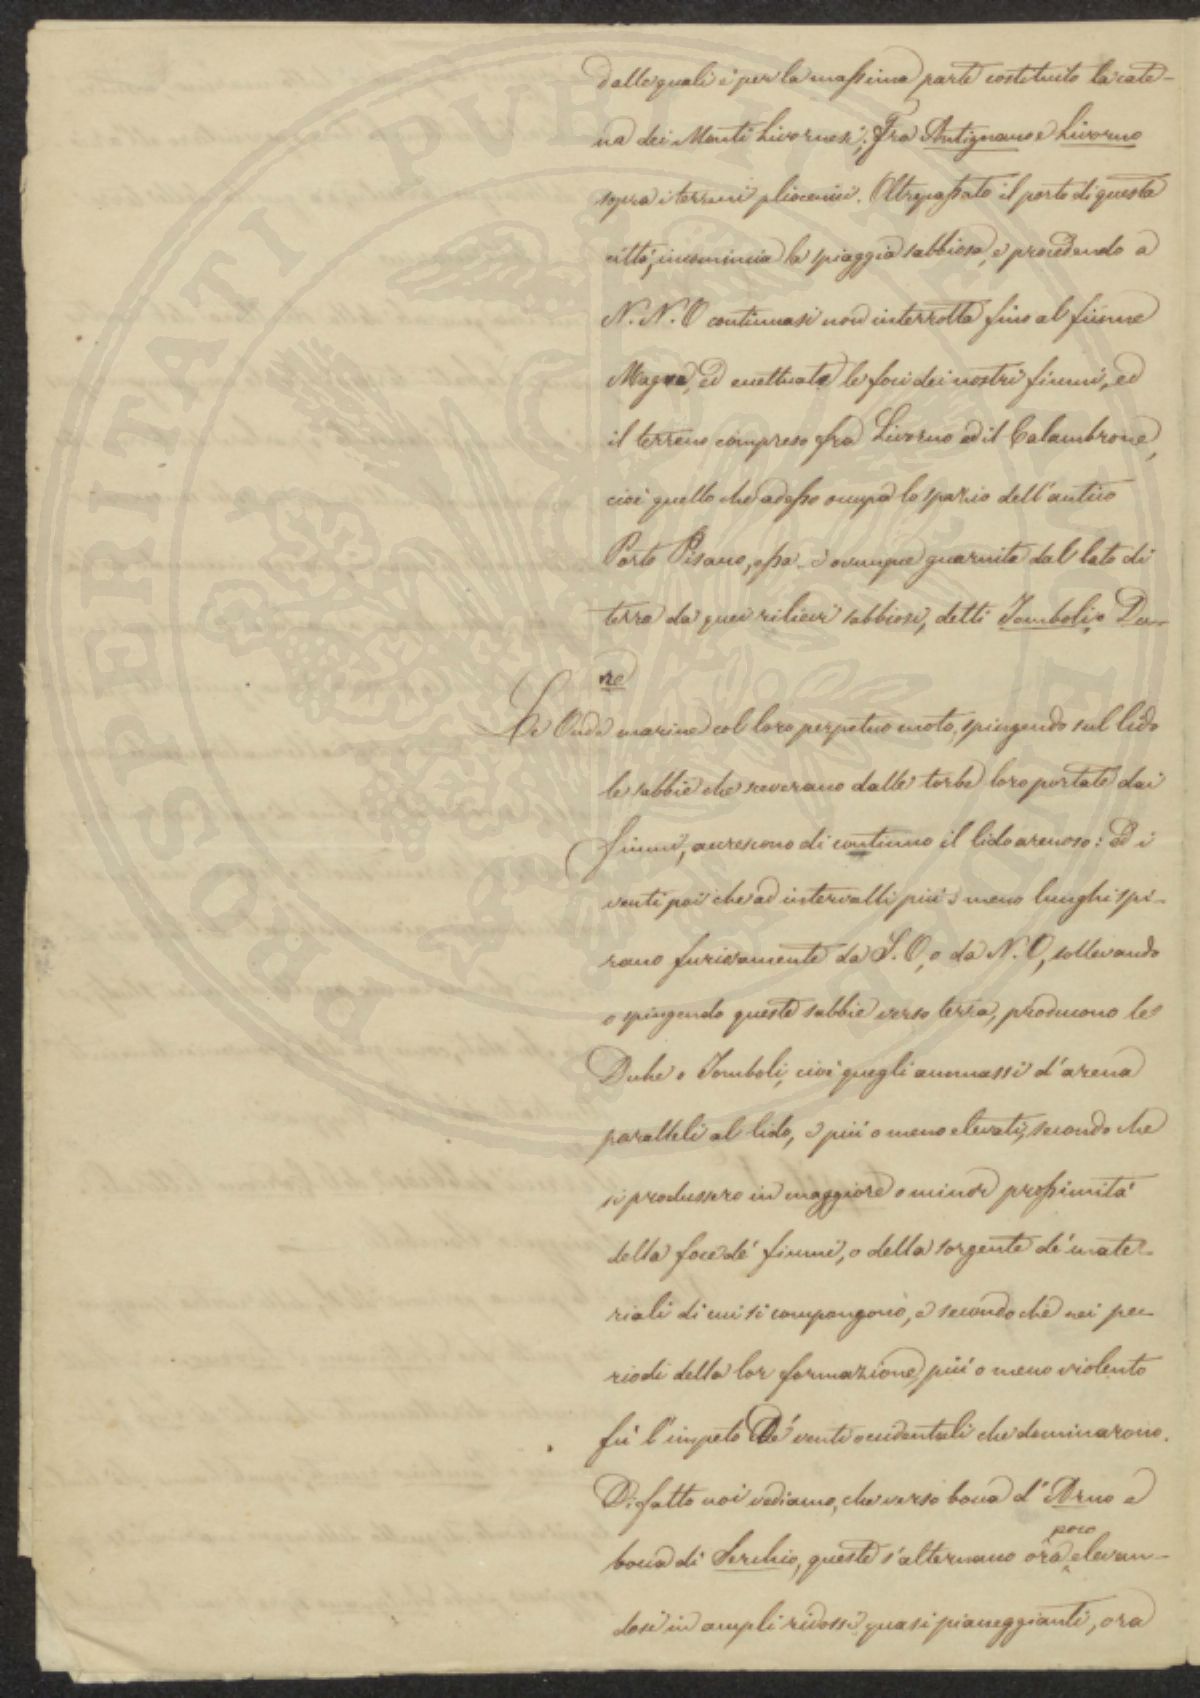 dalle quali è per la massima parte costituito la cate-
na dei Monti Livornesi; Fra Antignano e Livorno
sopra i terreni pliocenici. Oltrepassato il porto di questa
città, incomincia la spiaggia sabbiosa, e procedendo a
N. N. O continuasi non interrotta fino al fiume
Magra, ed eccettuate le foci dei nostri fiumi, ed
il terreno compreso fra Livorno ed il Calambrone,
cioè quello che adesso occupa lo spazio dell'antico
Porto Pisano, essa è ovunque guarnita dal lato di
terra da quei rilievi sabbiosi, detti Tomboli, o Du-
ne
Le Onde marine col loro perpetuo moto, spingendo sul lido
le sabbie che sceverano dalle torbe loro portate dai
fiumi, accrescono di continuo il lido arenoso: Ed i
venti poi che ad intervalli più o meno lunghi spi-
rano furiosamente da S. O, o da N. O, sollevando
o spingendo queste sabbie verso terra, producono le
Dune o Tomboli, cioè quegli ammassi d'arena
paralleli al lido, e più o meno elevati, secondo che
si produssero in maggiore o minor prossimità
della foce de' fiumi, o della sorgente de' mate-
riali di cui si compongono, e secondo che nei pe-
riodi della lor formazione, più o meno violento
fù l'impeto De' venti occidentali che dominarono.
Difatto noi vediamo, che verso bocca d'Arno e
bocca di Serchio, queste s'alternano ora poco elevan-
dosi in ampli ridossi quasi pianeggianti, ora
PROSPERITATI PUBLICAE